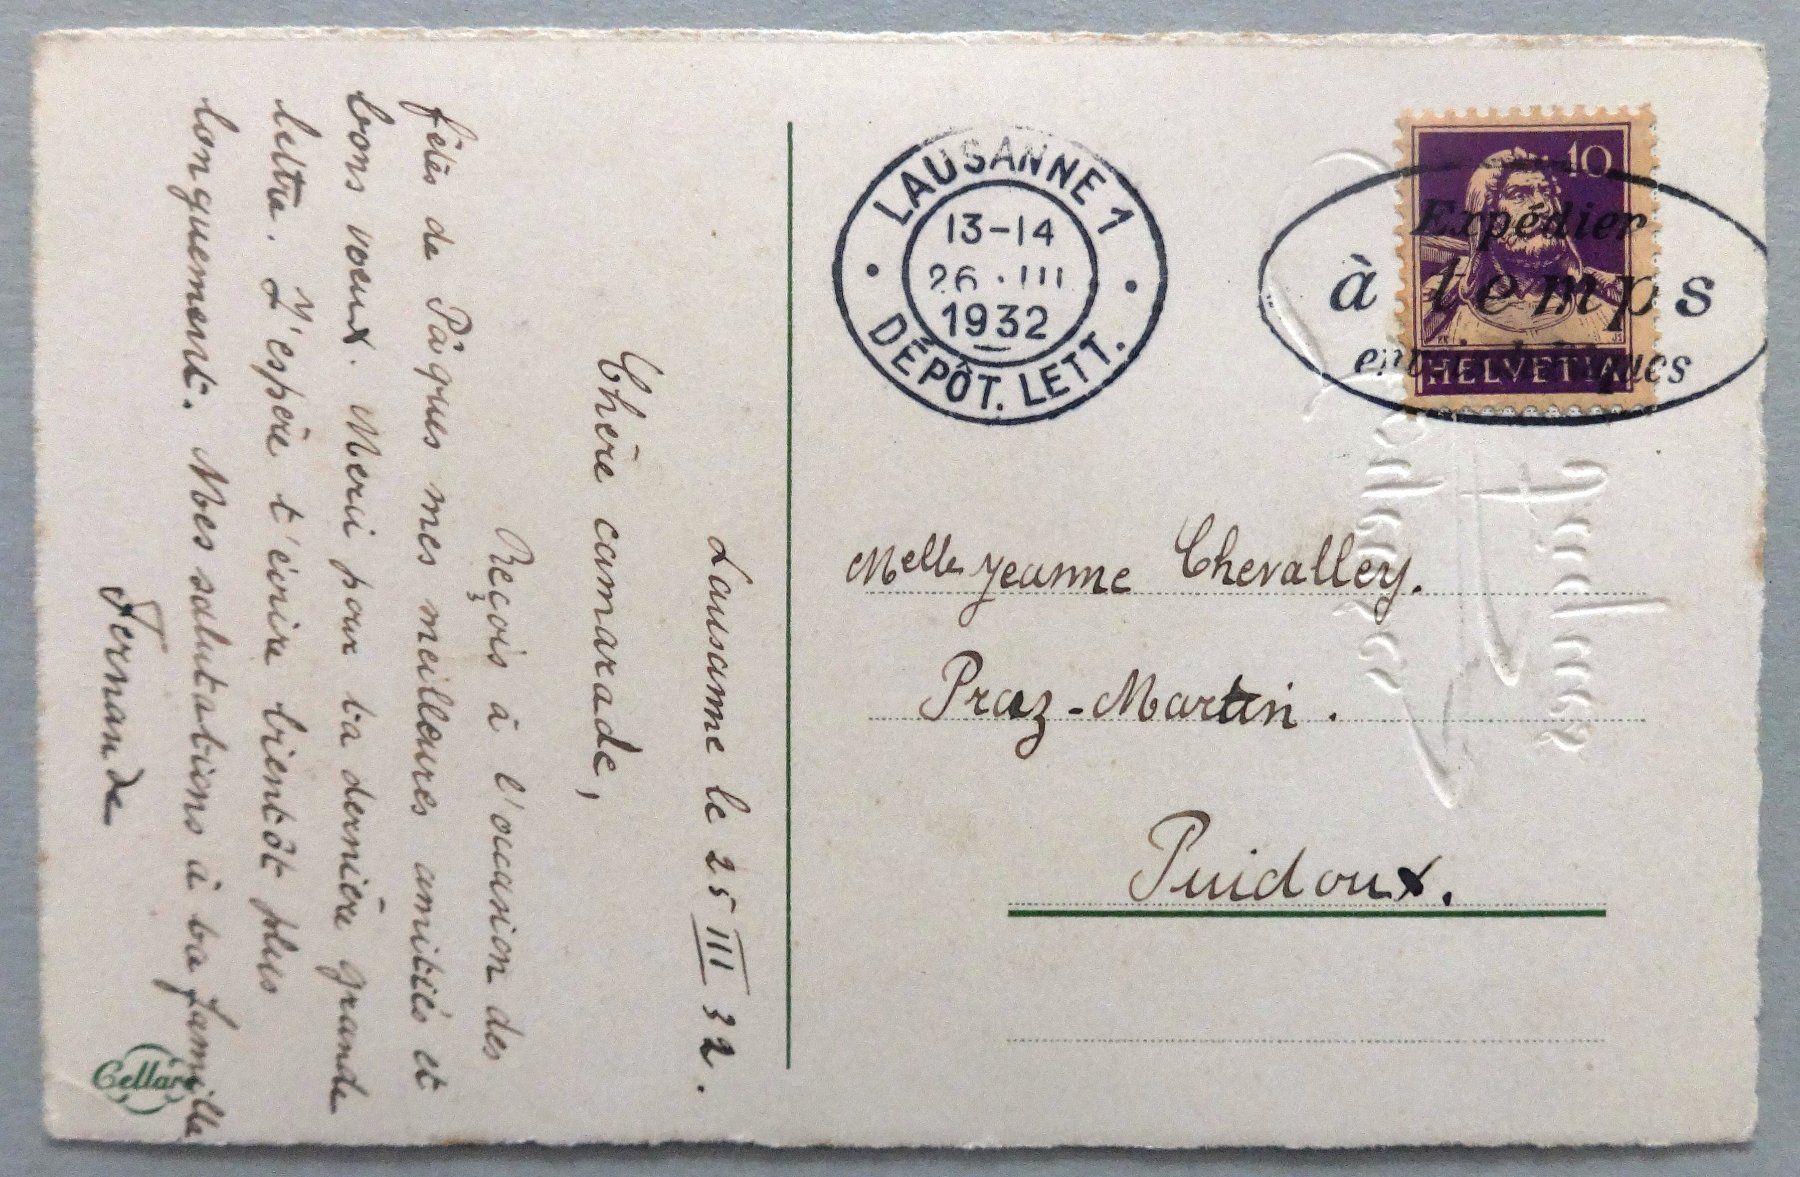 Lausanne le 25 III 32.
Chère camarade,
Reçois à l'occasion des
fêtes de Pâques mes meilleures amitiés et
bons voeux. Merci pour ta dernière grande
lettre. J'espère t'écrire bientôt plus
longuement. Mes salutations à ta famille
Fernande
Cellaro
LAUSANNE 1
13-14
26.III
1932
DÉPÔT. LETT.
10
HELVETIA
Expédier
à temps
Melle Jeanne Chevalley.
Praz-Martin.
Puidoux.